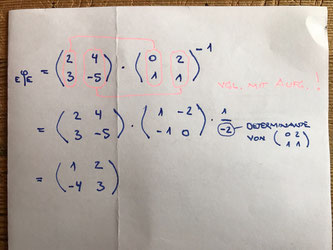 E φ E = ( 2 4 3 -5 ) · ( 0 2 1 1 )⁻¹
VGL. MIT AUFG.!
= ( 2 4 3 -5 ) · ( 1 -2 -1 0 ) · 1/-2 DETERMINANTE VON ( 0 2 1 1 )
= ( 1 2 -4 3 )